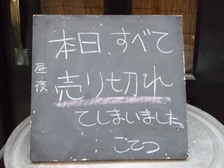 本日、すべて
昼夜
売り切れ
てしまいました。
こてつ